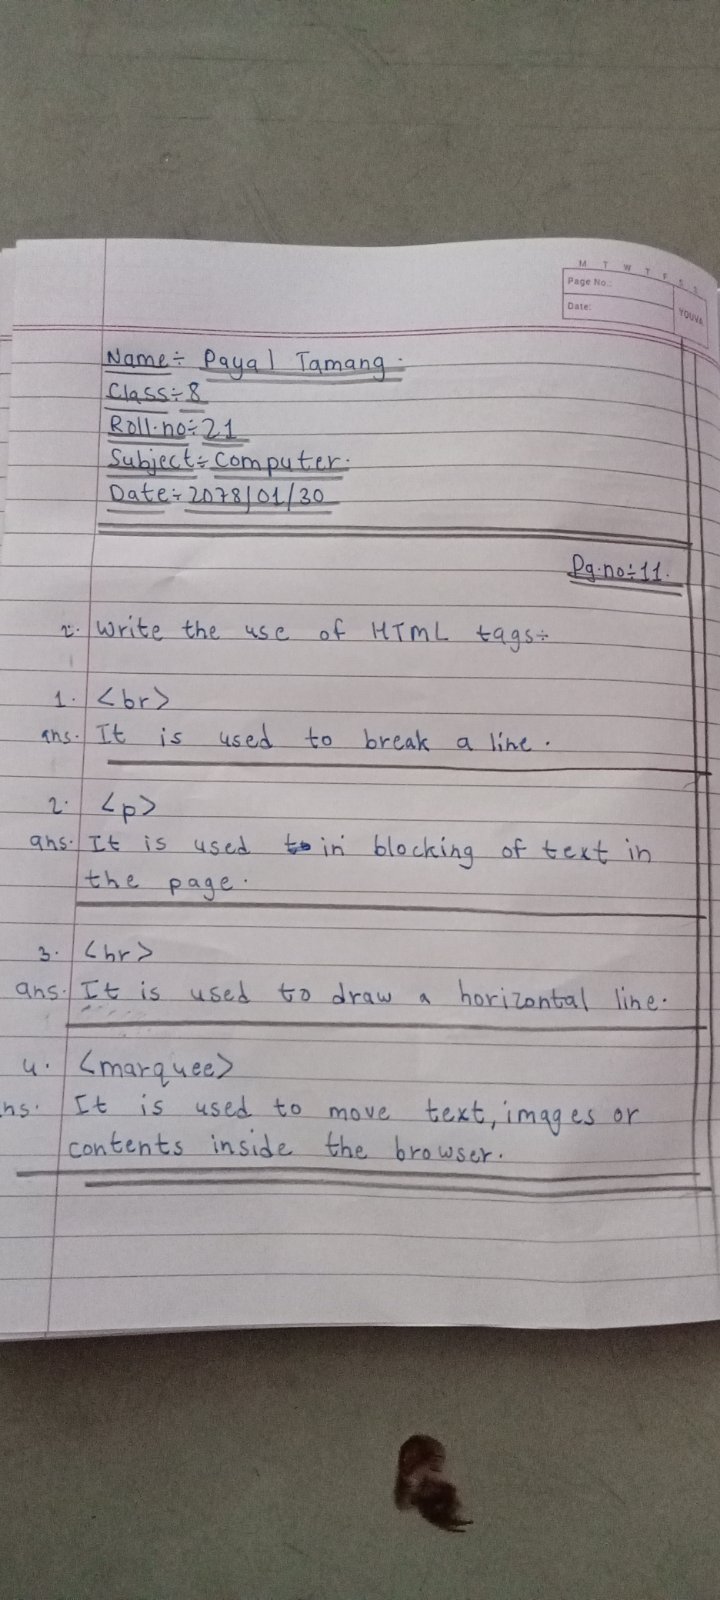 M T W T F S S
Page No.:
Date:
YOUVA
Name÷ Payal Tamang.
Class÷8
Roll.no÷21
Subject÷Computer.
Date÷2078/01/30
Pg.no÷11.
2. Write the use of HTML tags÷
1. <br>
ans. It is used to break a line.
2. <p>
ans. It is used in blocking of text in
the page.
3. <hr>
ans. It is used to draw a horizontal line.
4. <marquee>
ns. It is used to move text, images or
contents inside the browser.